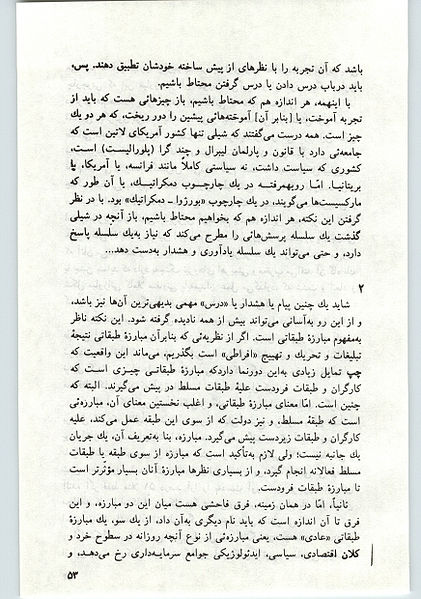 باشد که آن تجربه را با نظرهای از پیش ساخته خودشان تطبیق دهند. پس،
باید درباب درس دادن یا درس گرفتن محتاط باشیم.
با اینهمه، هر اندازه هم که محتاط باشیم، باز چیزهائی هست که باید از
تجربه آموخت، یا [بنابر آن] آموخته‌هائی پیشین را دور ریخت، که هر دو یك
چیز است. همه درست می‌گفتند که شیلی تنها کشور آمریکای لاتین است که
جامعه‌ئی دارد با قانون و پارلمان لیبرال و چند گرا (پلورالیست) است،
کشوری که سیاست داشت، نه سیاستی کاملاً مانند فرانسه، یا آمریکا، یا
بریتانیا. امّا رویهمرفته در یك چارچوب دمکراتیك، یا آن طور که
مارکسیست‌ها می‌گویند، در یك چارچوب «بورژوا ـ دمکراتیك» بود. با در نظر
گرفتن این نکته، هر اندازه هم که بخواهیم محتاط باشیم، باز آنچه در شیلی
گذشت یك سلسله پرسش‌هائی را مطرح می‌کند که نیاز به‌یك سلسله پاسخ
دارد، و حتی می‌تواند یك سلسله یادآوری و هشدار به‌دست دهد...
۲
شاید یك چنین پیام یا هشدار یا «درس» مهمی بدیهی‌ترین آن‌ها نیز باشد،
و از این رو به‌آسانی می‌تواند بیش از همه نادیده گرفته شود. این نکته ناظر
به‌مفهوم مبارزهٔ طبقاتی است. اگر از نظریه‌ئی که بنابرآن مبارزهٔ طبقاتی نتیجهٔ
تبلیغات و تحریك و تهییج «افراطی» است بگذریم، می‌ماند این واقعیت که
چپ تمایل زیادی به‌این دورنما داردکه مبارزهٔ طبقاتی چیزی است که
کارگران و طبقات فرودست علیهٔ طبقات مسلط در پیش می‌گیرند. البته که
چنین است. امّا معنای مبارزهٔ طبقاتی، و اغلب نخستین معنای آن، مبارزه‌ئی
است که طبقهٔ مسلط، و نیز دولت که از سوی این طبقه عمل می‌کند، علیه
کارگران و طبقات زیردست پیش می‌گیرد. مبارزه، بنا به‌تعریف آن، یك جریان
یك جانبه نیست؛ ولی لازم به‌تأکید است که مبارزه از سوی طبقه یا طبقات
مسلط فعالانه انجام گیرد، و از بسیاری نظرها مبارزهٔ آنان بسیار مؤثرتر است
تا مبارزهٔ طبقات فرودست.
ثانیاً، امّا در همان زمینه، فرق فاحشی هست میان این دو مبارزه، و این
فرق تا آن اندازه است که باید نام دیگری به‌آن داد، از یك سو، یك مبارزهٔ
طبقاتی «عادی» هست، یعنی مبارزه‌ئی از نوع آنچه روزانه در سطوح خرد و
کلان اقتصادی، سیاسی، ایدئولوژیکی جوامع سرمایه‌داری رخ می‌دهد، و
۵۳